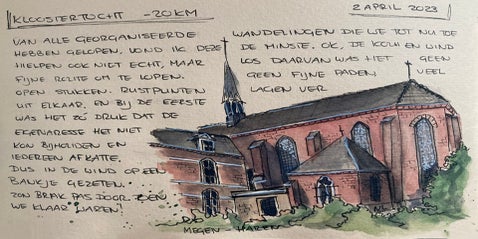 KLOOSTERTOCHT - 20KM 2 APRIL 2023
VAN ALLE GEORGANISEERDE WANDELINGEN DIE WE TOT NU TOE
HEBBEN GELOPEN, VOND IK DEZE DE MINSTE. OK, DE KOU EN WIND
HIELPEN OOK NIET ECHT, MAAR LOS DAARVAN WAS HET GEEN
FIJNE ROUTE OM TE LOPEN. GEEN FIJNE PADEN. VEEL
OPEN STUKKEN. RUSTPUNTEN LAGEN VER
UIT ELKAAR. EN BIJ DE EERSTE
WAS HET ZÓ DRUK DAT DE
EIGENARESSE HET NIET
KON BIJHOUDEN EN
IEDEREEN AFKATTE.
DUS IN DE WIND OP EEN
BANKJE GEZETEN.
ZON BRAK PAS DOOR TOEN
WE KLAAR WAREN!
MEGEN HAREN